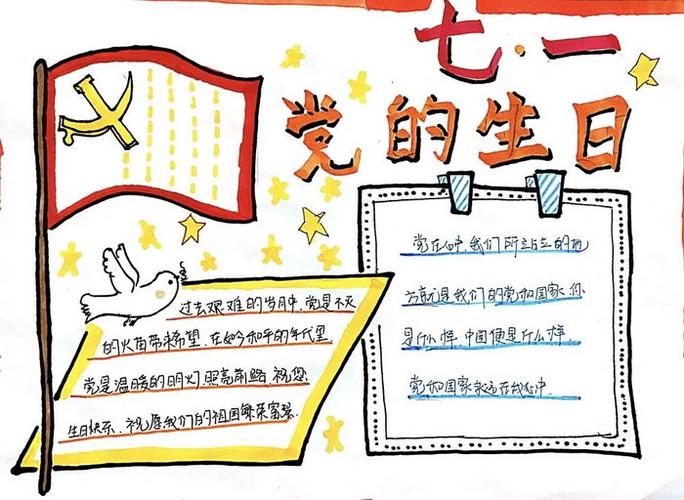 七·一
党的生日
过去艰难的岁月中,党是不灭
的火苗带来希望.在如今和平的年代里.
党是温暖的明灯.照亮前路.祝您
生日快乐.祝愿我们的祖国繁荣富强.
党在心中.我们所站立的地
方就是我们的党和国家.你
是什么样.中国便是什么样.
党和国家永远在我心中.